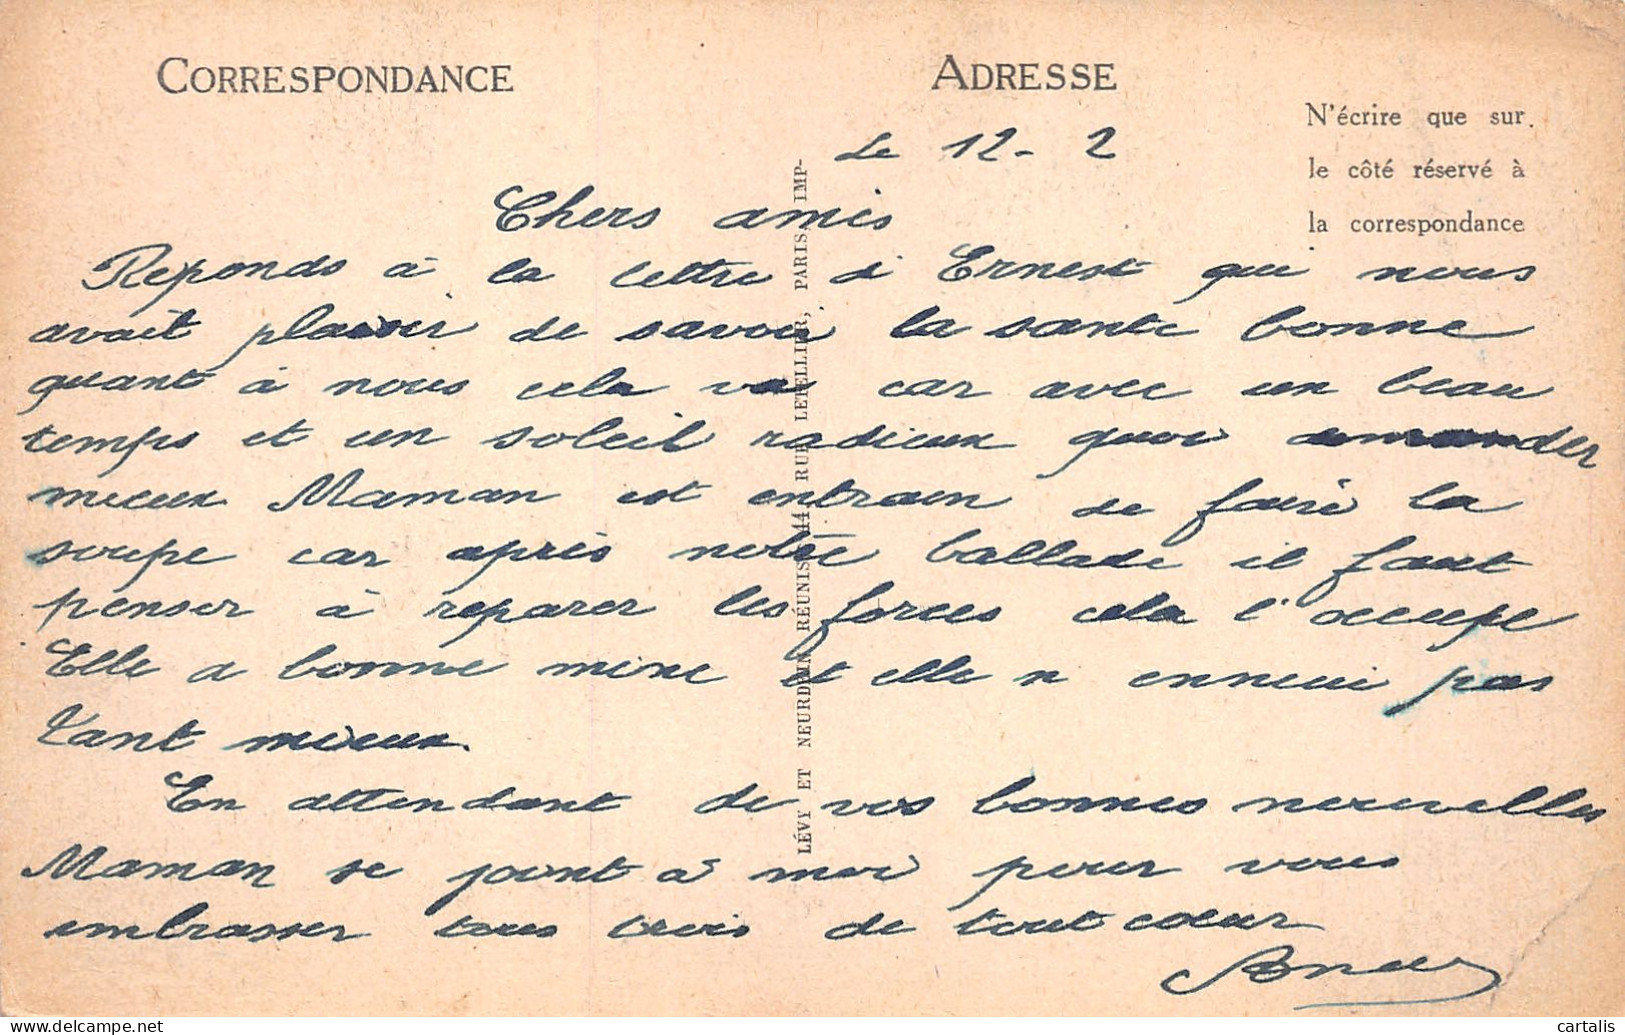 CORRESPONDANCE
ADRESSE
N'écrire que sur
le côté réservé à
la correspondance
Le 12-2
Chers amis
Reponds à la lettre d'Ernest qui nous
avait plaisir de savoir la sante bonne
quant à nous cela va car avec un beau
temps et un soleil radieux quoi demander
mieux Maman est entrain de faire la
soupe car après notre ballade il faut
penser à reparer les forces cela l'occupe
Elle a bonne mine et elle n ennuui pas
tant mieux.
En attendant de vos bonnes nouvelles
Maman se joint à moi pour vous
embrasser tous trois de tout cœur
LÉVY ET NEURDEIN RÉUNIS, 44, RUE LETELLIER, PARIS, IMP-
cartalis
www.delcampe.net